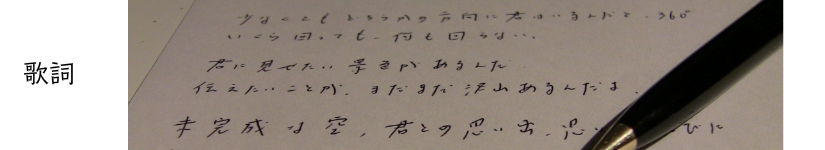 歌詞
少なくともどちらかの方向に君はいるんだと、360°
いくら回っても、何も回らない…
君に見せたい景色があるんだ
伝えたいことが、まだまだ沢山あるんだよ、
未完成な空、君との思い出、思い びに